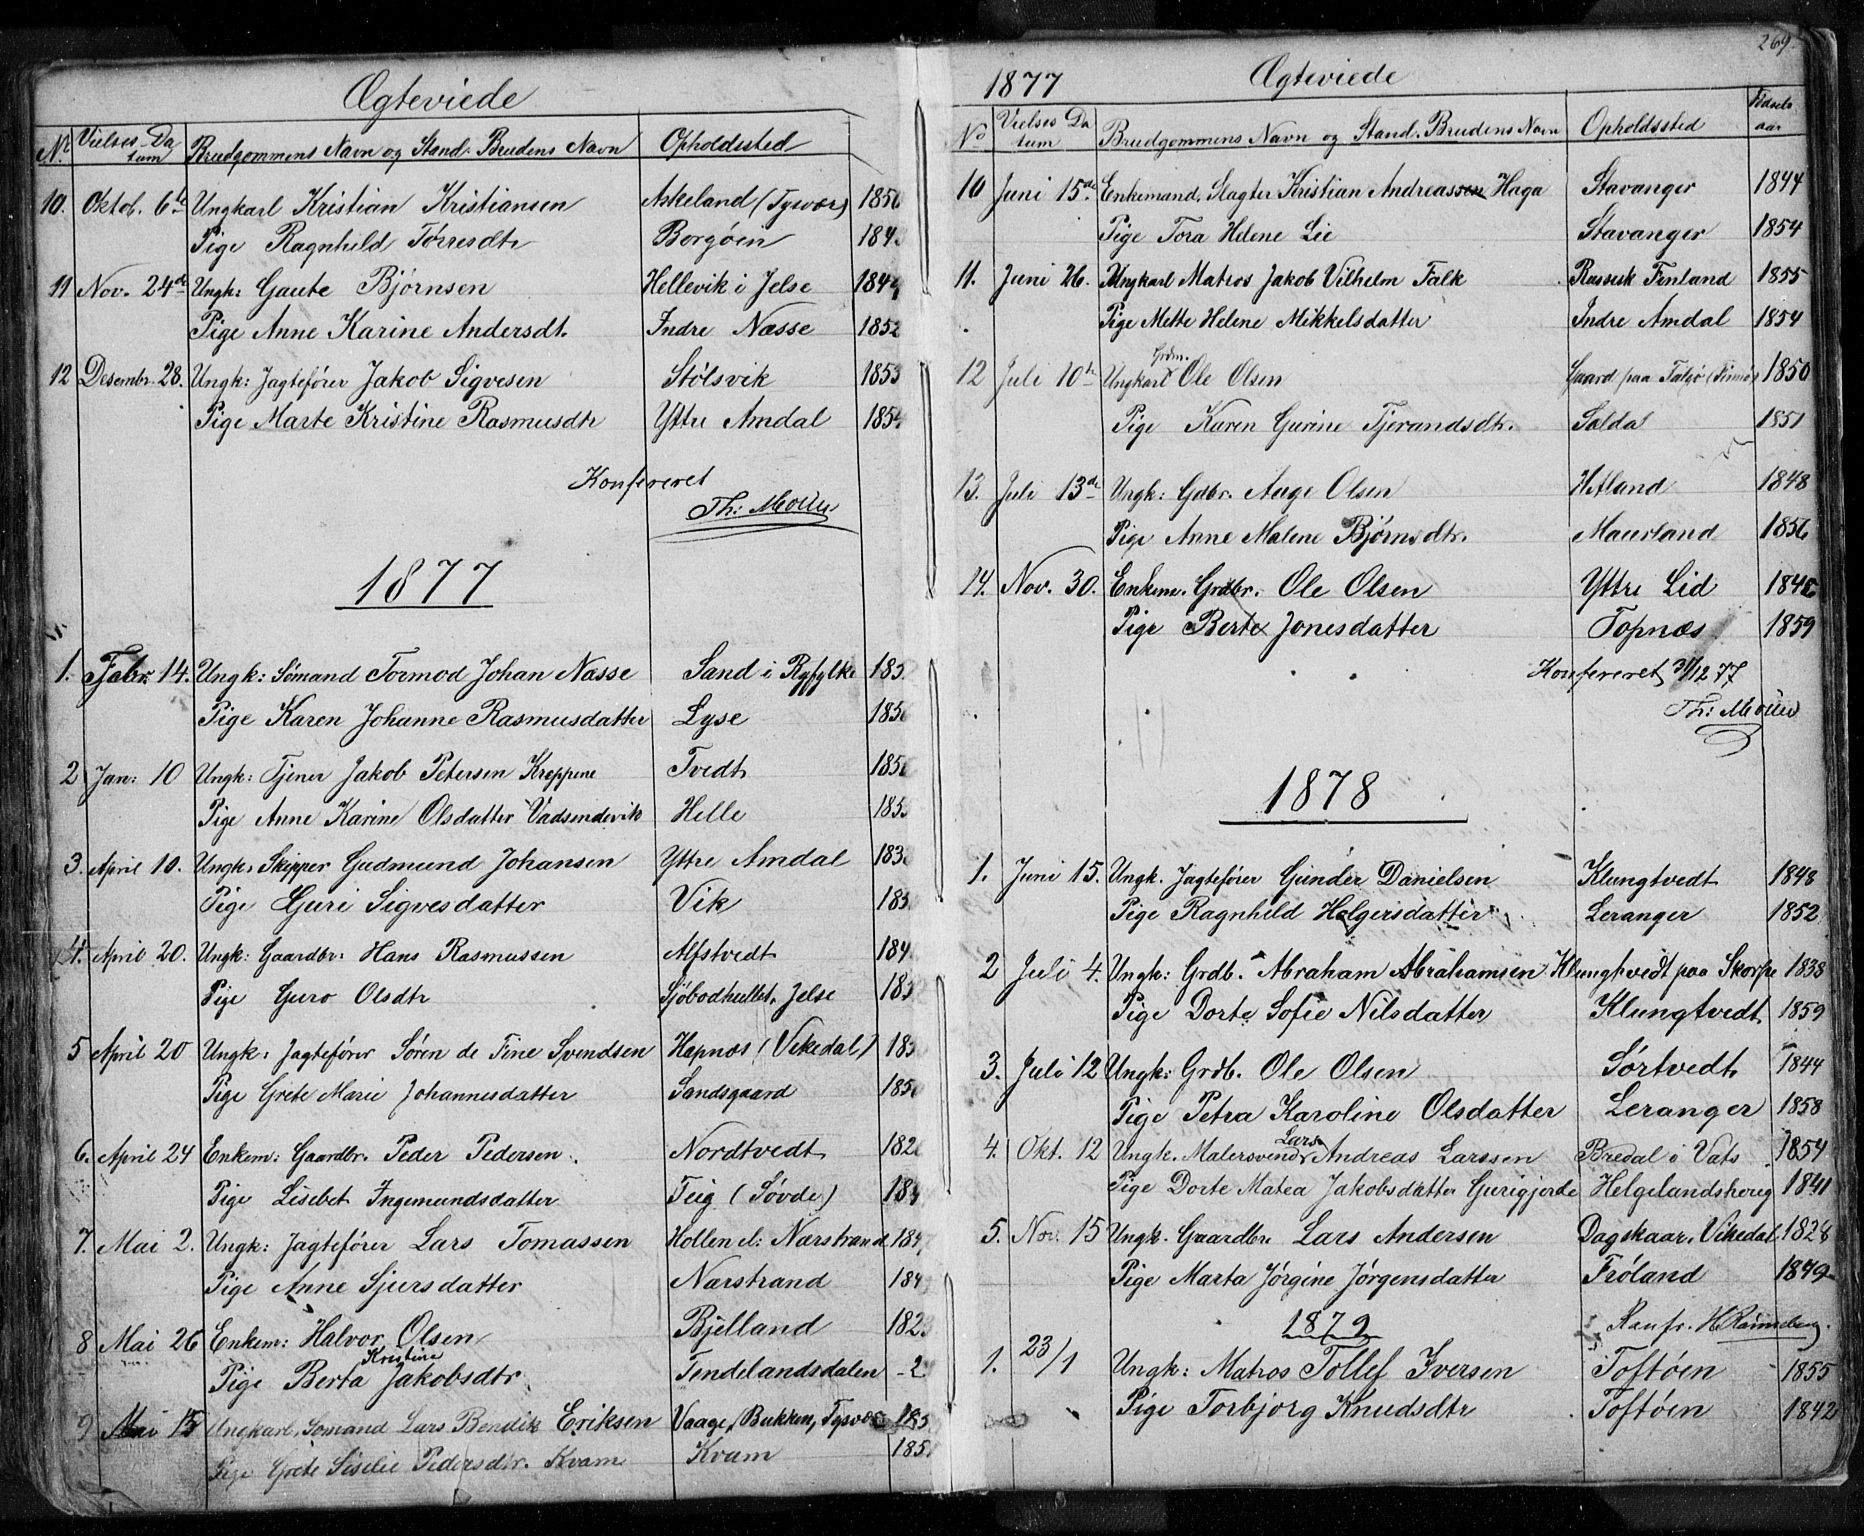 Ægteviede
Nr. Vielses Datum Brudgommens Navn og Stand. Brudens Navn Opholdssted
10. Oktob. 6te Ungkarl Kristian Kristiansen Askeland (Tysvær) 1850
Pige Ragnhild Tørresdtr Borgøen 184
11 Nov. 24de Ungk: Gaute Bjørnsen Hellevik i Jelse 1849
Pige Anne Karine Andersdt. Indre Næsse 1852
12 Desembr. 28. Ungk: Jagtefører Jakob Sigvesen Stølsvik 1853
Pige Marte Kristine Rasmusdtr Yttre Amdal 1854
Konfereret
Th: Møller
1877
1. Febr. 14. Ungk: Sømand Tormod Johan Næsse Sand i Ryfylke 183
Pige Karen Johanne Rasmusdatter Lyse 185
2 Jan: 10 Ungk: Tjener Jakob Petersen Kreppene Tvedt 185
Pige Anne Karine Olsdatter Vadsendevik Helle 185
3. April 10. Ungk: Skipper Gudmund Johansen Yttre Amdal 183
Pige Guri Sigvesdatter Vik 183
4. April 20. Ungk: Gaardbr. Hans Rasmussen Alfstvedt 184
Pige Guro Olsdtr Sjøbodhullet, Jelse 183
5 April 20 Ungk: Jagtefører Søren de Fine Svendsen Hapnæs (Vikedal) 183
Pige Grete Marie Johannesdatter Sandsgaard 185
6. April 24 Enkem: Gaardbr. Peder Pedersen Nordtvedt 182
Pige Lisebet Ingemundsdatter Teig (Søvde) 184
7. Mai 2. Ungk: Jagtefører Lars Tomassen Hollen el: Nærstrand 184
Pige Anne Sjursdatter Nærstrand 184
8 Mai 26 Enkem: Halvor Olsen Bjelland 182
Kristine
Pige Berta Jakobsdtr Tendelandsdalen -2
9 Mai 15 Ungkarl, Sømand Lars Bendik Eriksen Vaage, Bukken, Tysvær 185
Pige Grete Siselie Pedersdtr. Kvam Kvam 185
269.
1877 Ægteviede
No Vielses Datum Brudgommens Navn og Stand. Brudens Navn Opholdssted Fødselsaar
10 Juni 15de Enkemand, Slagter Kristian Andreassen Haga Stavanger 1844
Pige Tora Helene Lie Stavanger 1854
11. Juni 26. Ungkarl Matros Jakob Vilhelm Falk Russisk Finland 1855
Pige Mette Helene Mikkelsdatter Indre Amdal 1854
Grdm.
12 Juli 10de Ungkarl Ole Olsen Gaard paa Talgø (Finnø) 1850
Pige Karen Gurine Tjerandsdtr. Salda 1851
13. Juli 13de Ungk: Gdbr. Aage Olsen Hetland 1848
Pige Anne Malene Bjørnsdtr. Maurland 1856
14. Nov. 30. Enkem. Grdbr. Ole Olsen Yttre Lid 184
Pige Berte Jonesdatter Topnæs 1859
Konfereret 31/12 77
Th: Møller
1878
1. Juni 15. Ungk. Jagtefører Gunder Danielsen Klungtvedt 1848
Pige Ragnhild Holgersdatter Leranger 1852
2 Juli 4. Ungk: Grdb. Abraham Abrahamsen Klungtvedt paa Skorpe 1838
Pige Dorte Sofie Nilsdatter Klungtvedt 1859
3. Juli 12 Ungk: Grdb. Ole Olsen Sørtvedt 1844
Pige Petra Karoline Olsdatter Leranger 1858
Lars
4. Okt. 12 Ungk. Malersvend Andreas Larssen Bredal i Vats 1854
Pige Dorte Matea Jakobsdatter Gurigjerde Helgelandshereg 1841
5. Nov. 15 Ungk. Gaardbr Lars Andersen Dagskaar, Vikedal 1828
Pige Marta Jørgine Jørgensdatter Frøland 1849
1879 Konfr.
1. 23/1 Ungk: Matros Tollef Iversen Toftøen 1855
Pige Torbjørg Knudsdtr Toftøen 1842